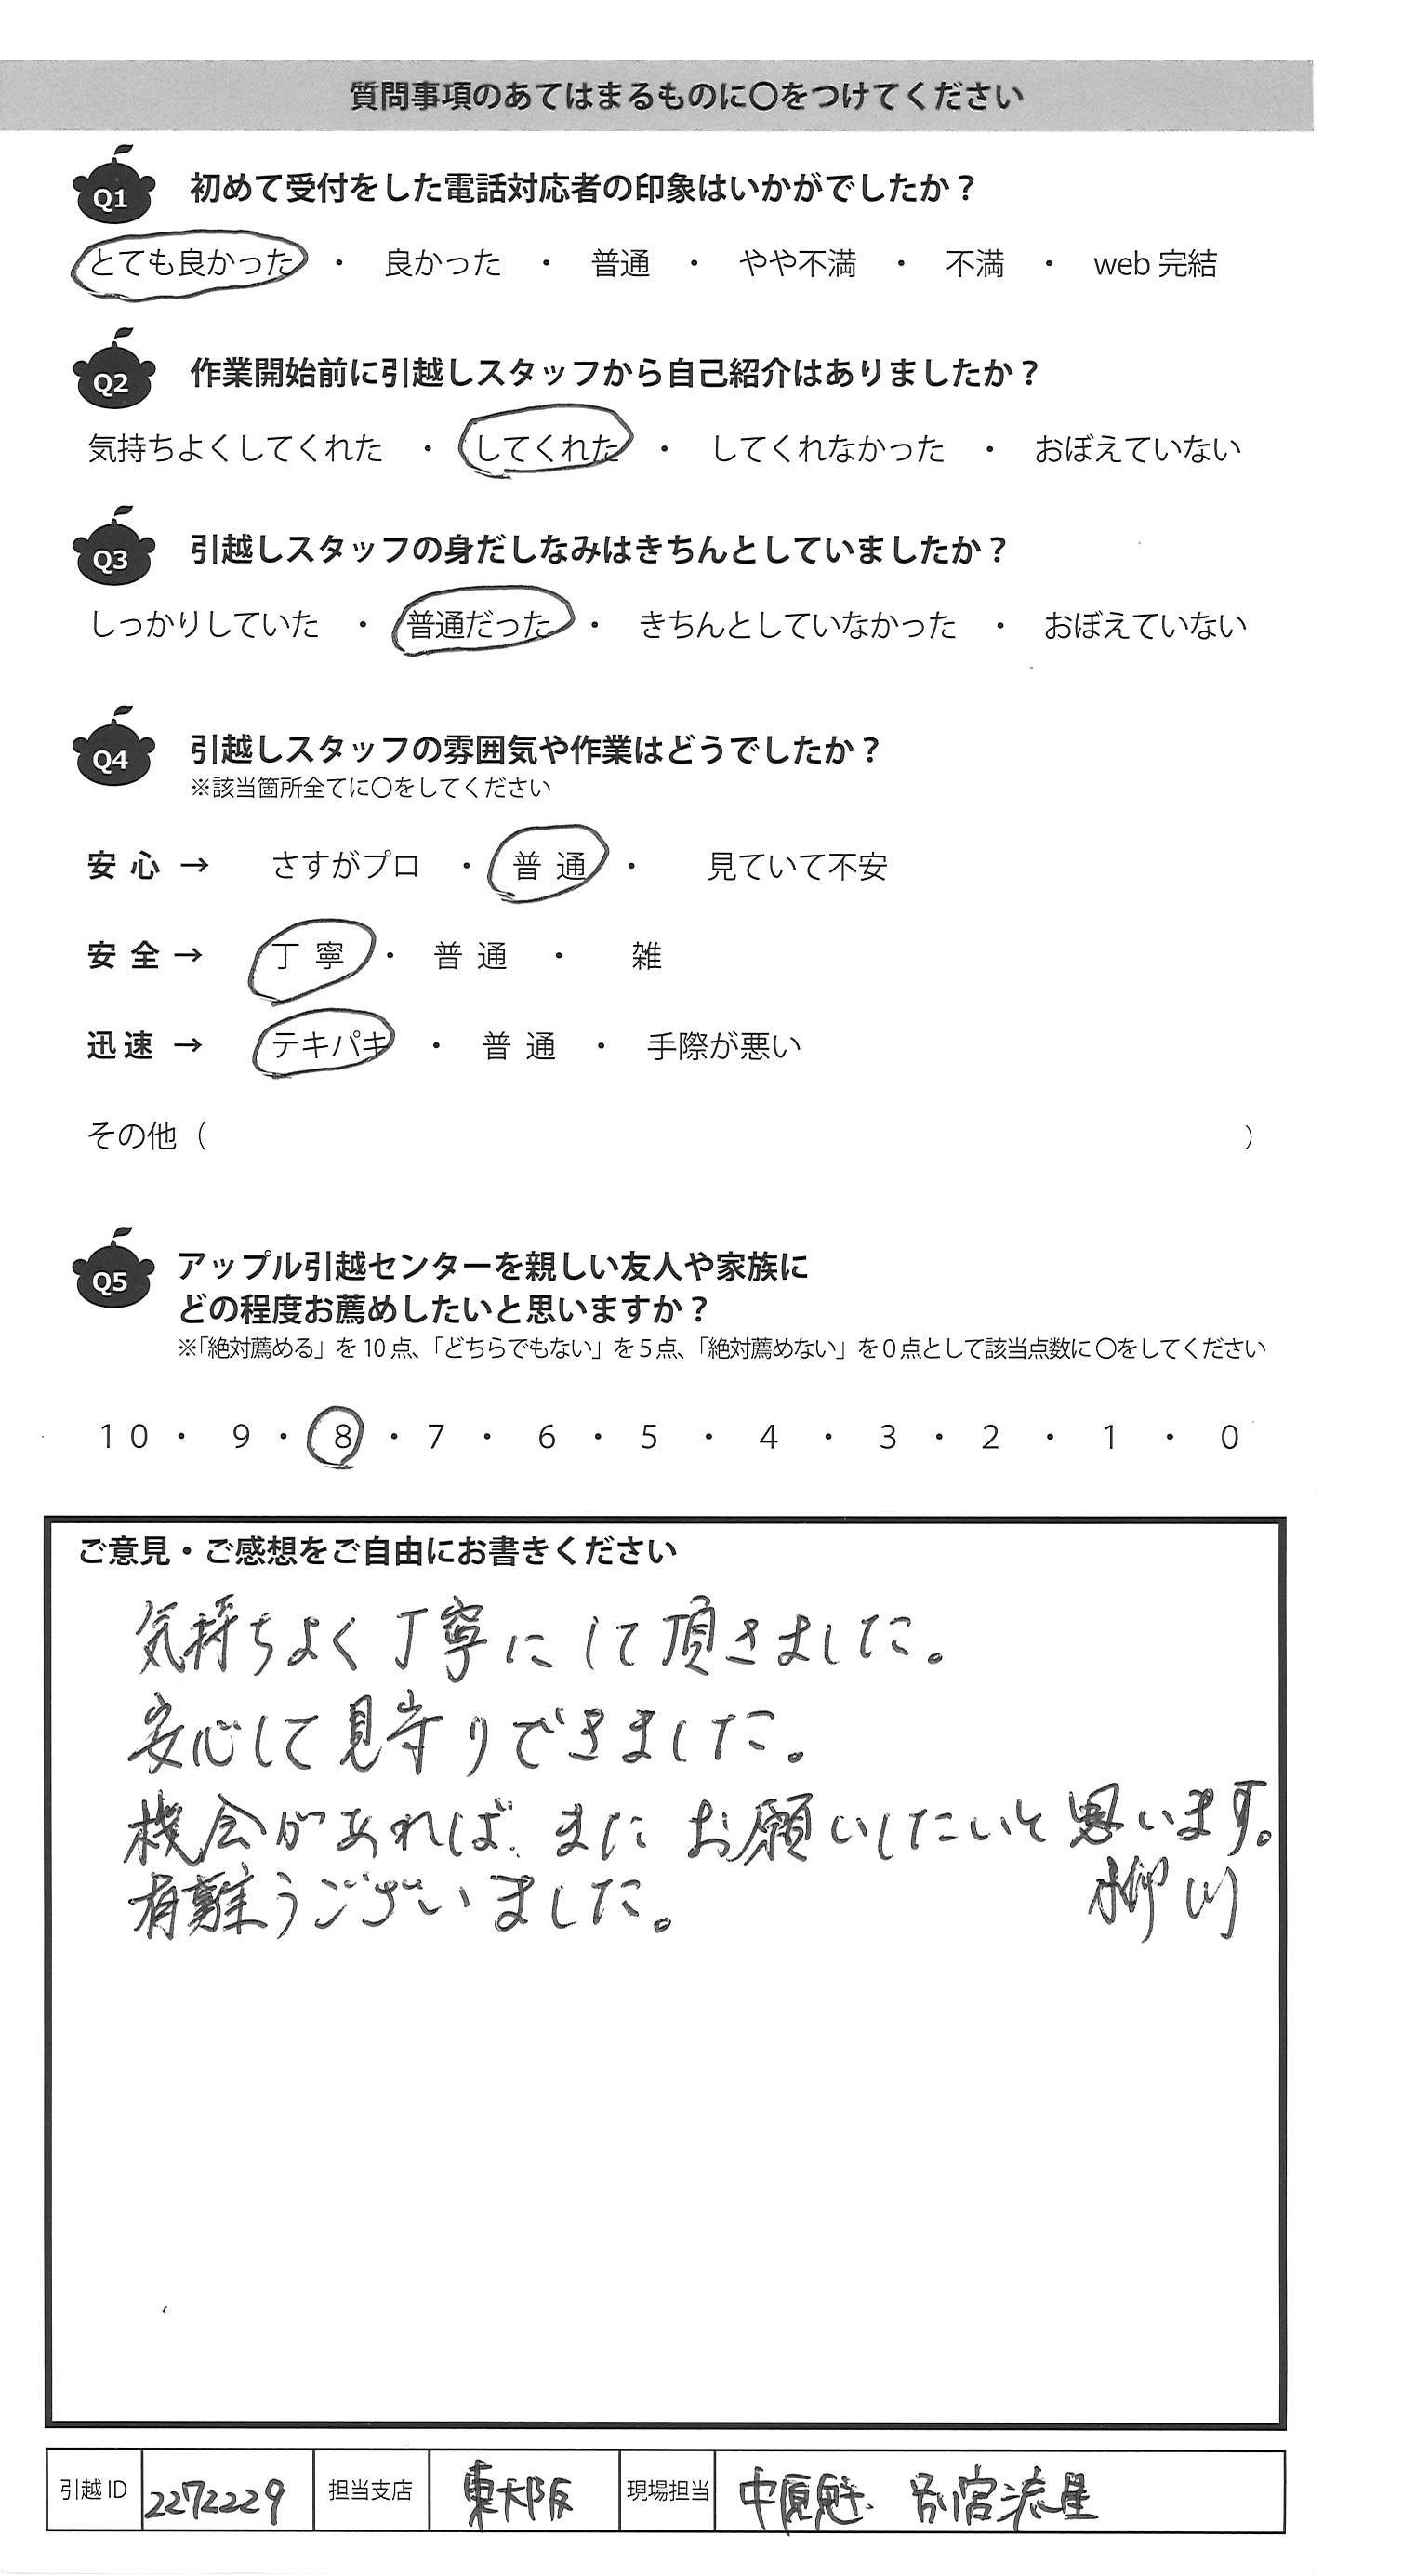 質問事項のあてはまるものに〇をつけてください
Q1 初めて受付をした電話対応者の印象はいかがでしたか？
とても良かった ・ 良かった ・ 普通 ・ やや不満 ・ 不満 ・ web 完結
Q2 作業開始前に引越しスタッフから自己紹介はありましたか？
気持ちよくしてくれた ・ してくれた ・ してくれなかった ・ おぼえていない
Q3 引越しスタッフの身だしなみはきちんとしていましたか？
しっかりしていた ・ 普通だった ・ きちんとしていなかった ・ おぼえていない
Q4 引越しスタッフの雰囲気や作業はどうでしたか？
※該当箇所全てに〇をしてください
安 心 → さすがプロ ・ 普 通 ・ 見ていて不安
安 全 → 丁 寧 ・ 普 通 ・ 雑
迅 速 → テキパキ ・ 普 通 ・ 手際が悪い
その他（ ）
Q5 アップル引越センターを親しい友人や家族に
どの程度お薦めしたいと思いますか？
※「絶対薦める」を 10 点、「どちらでもない」を 5 点、「絶対薦めない」を 0 点として該当点数に 〇をしてください
10 ・ 9 ・ 8 ・ 7 ・ 6 ・ 5 ・ 4 ・ 3 ・ 2 ・ 1 ・ 0
ご意見・ご感想をご自由にお書きください
気持ちよく丁寧にして頂きました。
安心して見守りできました。
機会があれば、また お願いしたいと思います。
有難うございました。 柳川
引越 ID 2272229 担当支店 東大阪 現場担当 中原 別宮流星